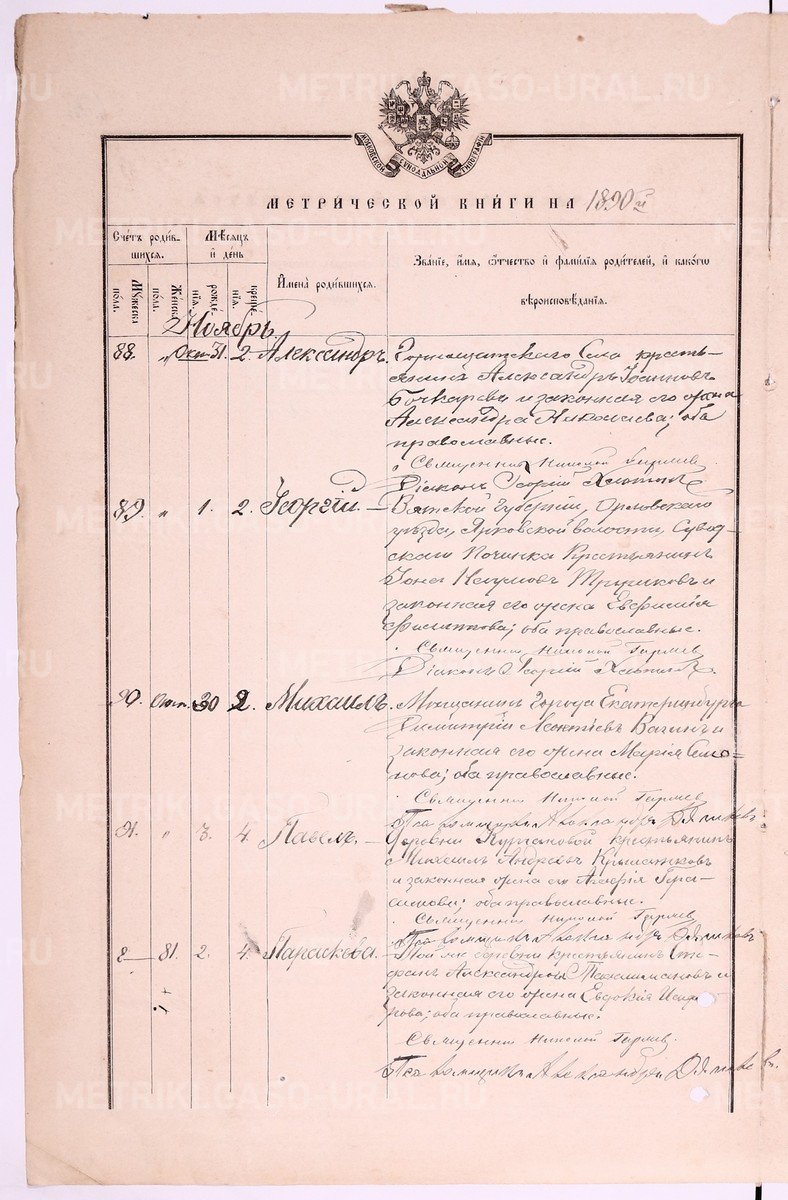 МОСКОВСКОЙ СѴНОДАЛЬНОЙ ТИПОГРАФІИ
МЕТРИ́ЧЕСКОЙ КНИ́ГИ НА 1890й
Сче́тъ роди́в-
шихся.
Мѣ́сяцъ
и҆ де́нь
И҆мена̀ роди́вшихся.
Зва́нїе, и҆́мя, ѻ҆́тчество и҆ фами́лїя роди́телей, и҆ како́гѡ
вѣроисповѣ́данїя.
Мꙋ́жеска по́ла.
Же́нска по́ла.
рожде́нїѧ.
креще́нїѧ.
Ноябрь
88. " Окт. 31. 2. Александръ. Горнощитскаго Села кресть-
янинъ Александръ Іоанновъ
Бочкаревъ и законная его жена
Александра Николаева; оба
православные.
Священникъ Николай
Діаконъ Георгій
89. " 1. 2. Георгій. — Вятской Губерніи, Орловскаго
уѣзда, волости,
Починка Крестьянинъ
Іона Наумовъ и
законная его жена Евфимія
Филиппова; оба православные.
Священникъ Николай
Діаконъ Георгій
90. Окт. 30 2. Михаилъ. Мѣщанинъ города Екатеринбурга
Димитрій Леонтіевъ Вагинъ и
законная его жена Марія Семе-
нова; оба православные.
Священникъ Николай
Псаломщикъ Александръ
91. " 3. 4. Павелъ. — Деревни Кургановой крестьянинъ
Михаилъ Андреевъ
и законная жена его Гера-
симова; оба православные.
Священникъ Николай
Псаломщикъ Александръ
81. 2. 4. Параскева. — Той же деревни крестьянинъ Сте-
фанъ Александровъ и
законная его жена Евдокія
оба православные.
Священникъ Николай
Псаломщикъ Александръ
METRIKI.GASO-URAL.RU